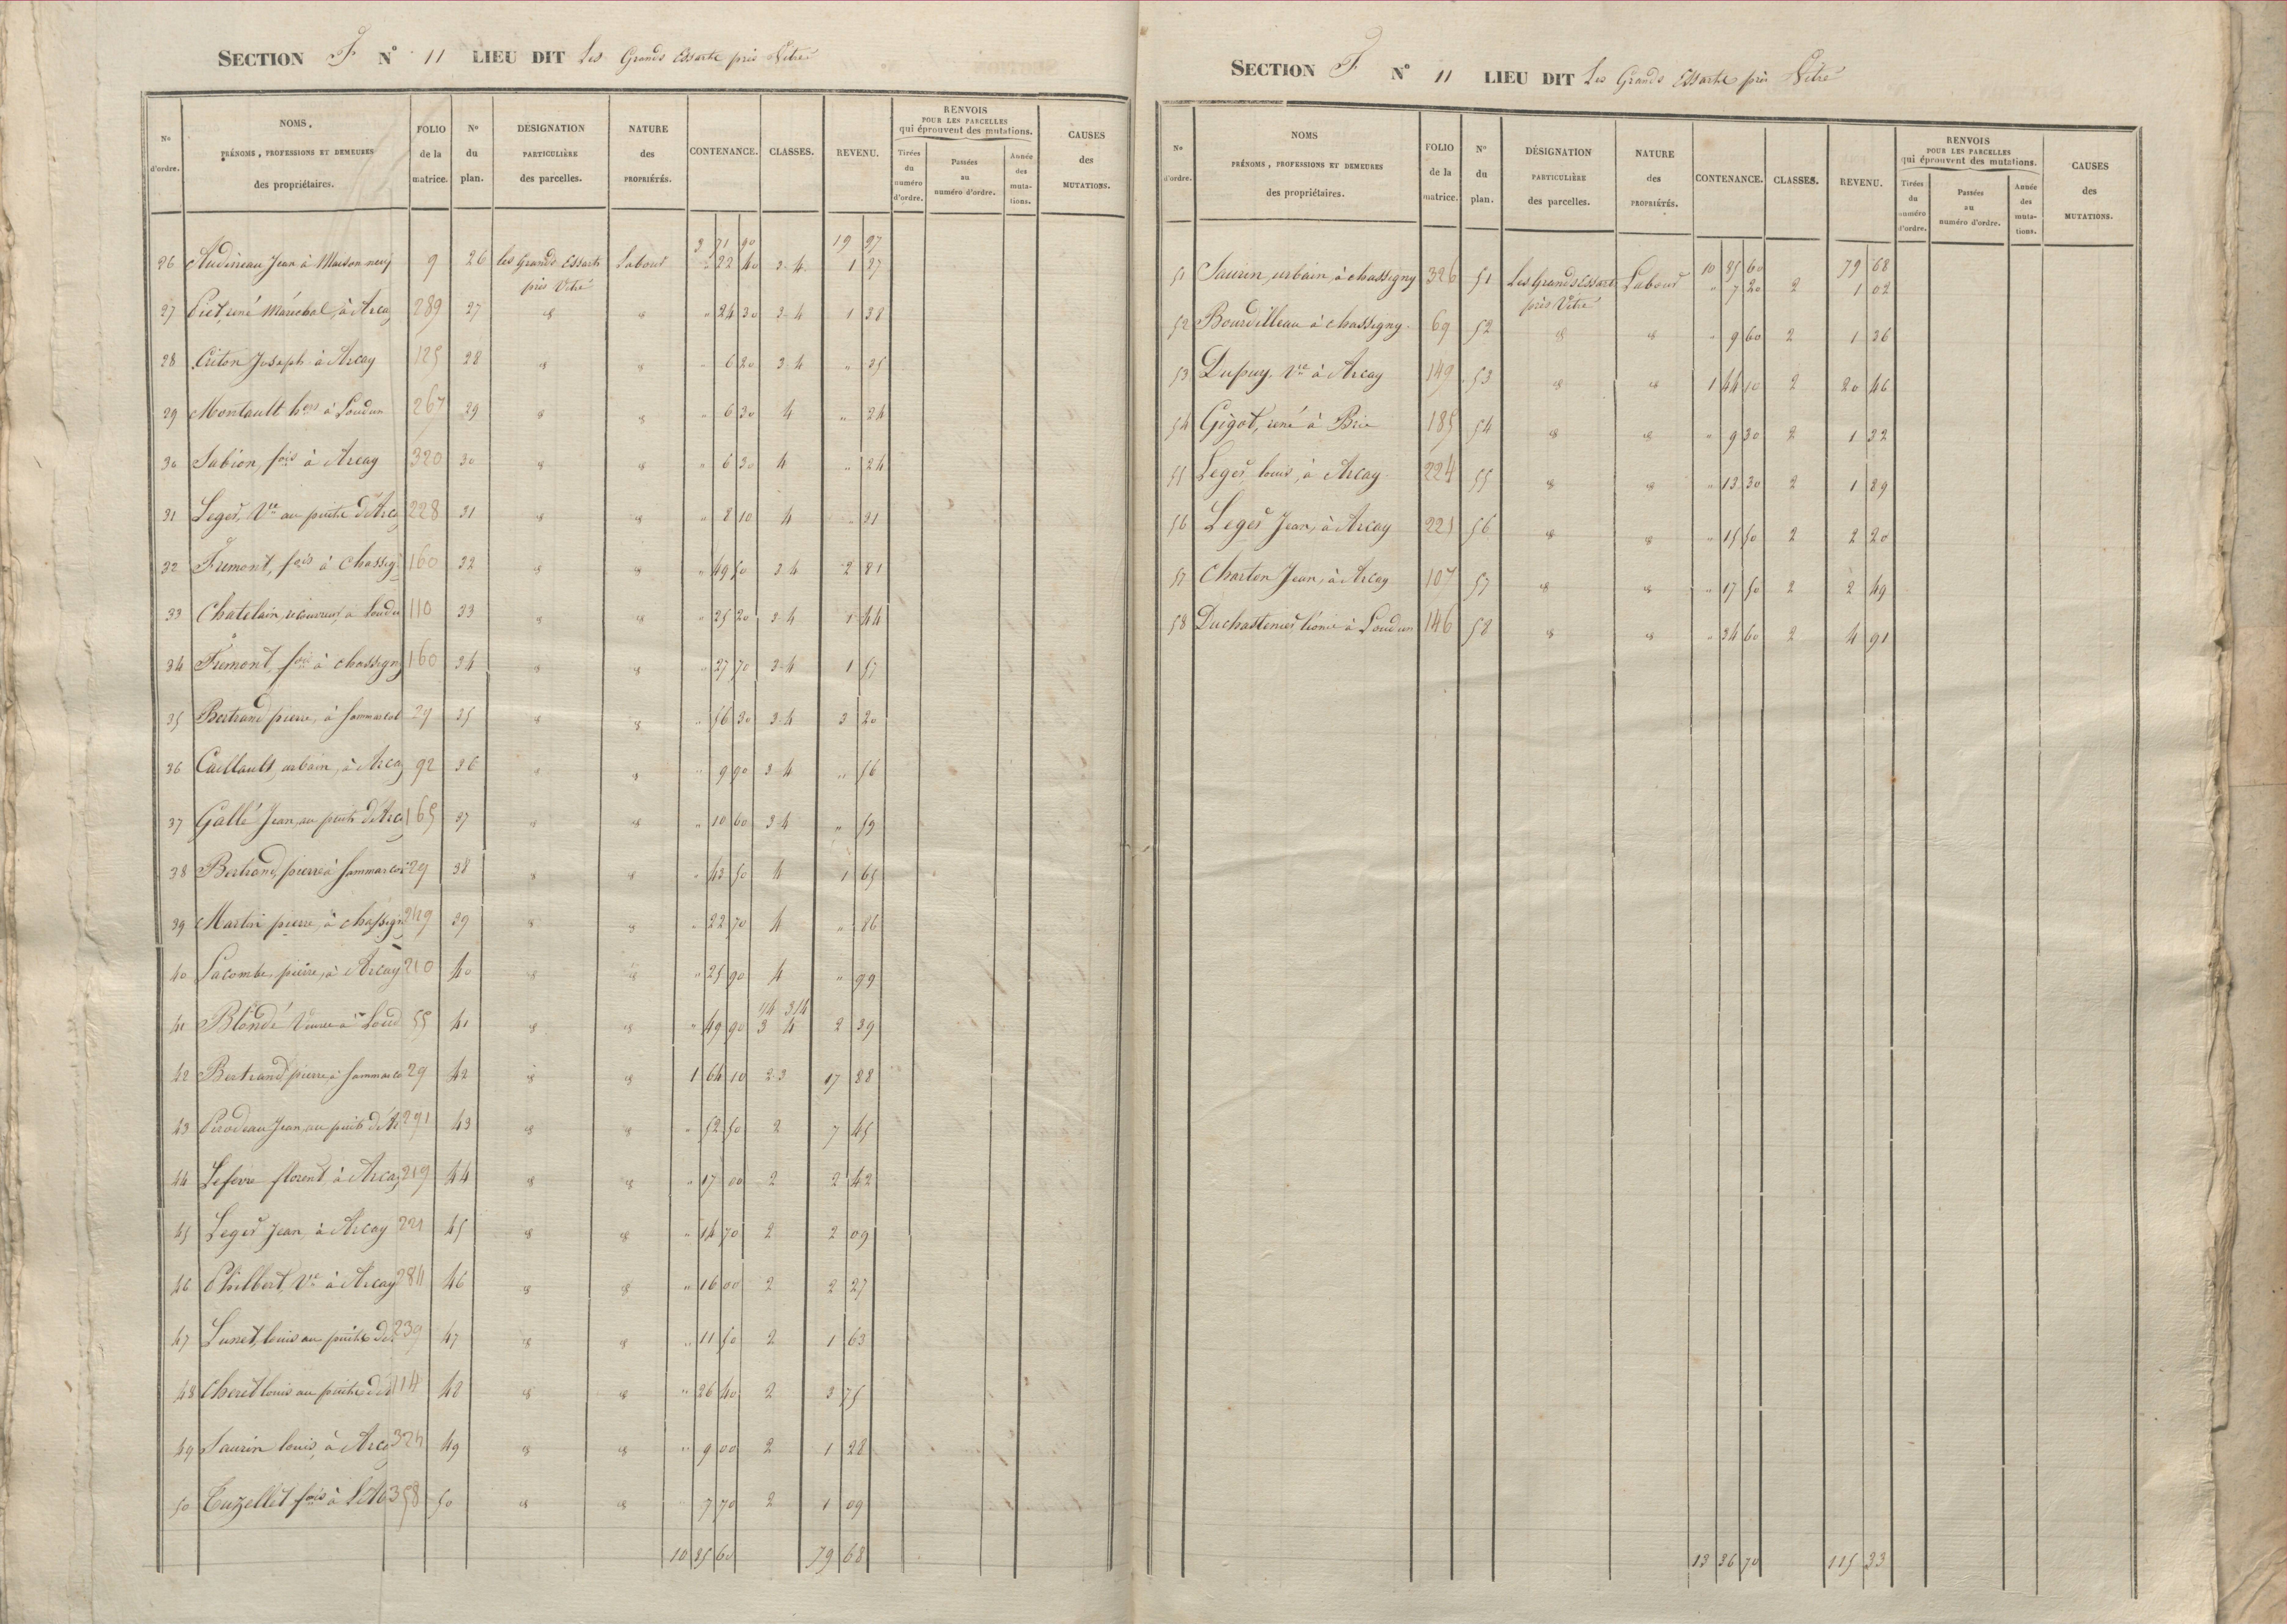 SECTION F N° 11 LIEU DIT Les Grands Essarts près Vitré
N° d'ordre. NOMS, PRÉNOMS, PROFESSIONS ET DEMEURES des propriétaires. FOLIO de la matrice. N° du plan. DÉSIGNATION PARTICULIÈRE des parcelles. NATURE des PROPRIÉTÉS. CONTENANCE. CLASSES. REVENU. RENVOIS POUR LES PARCELLES qui éprouvent des mutations. Tirées du numéro d'ordre. Passées au numéro d'ordre. Année des mutations. CAUSES des MUTATIONS.
3 71 90 19 97
26 Audineau Jean à Maison neuv 9 26 les Grands Essarts Labour " 22 40 3-4 1 27
près Vitré
27 Piet, rené Maréchal, à Arcay 289 27 id id " 24 30 3-4 1 38
28 Criton Joseph à Arcay 125 28 id id " 6 20 3 4 " 35
29 Montault hers à Loudun 267 29 id id " 6 30 4 " 24
30 Sabion, fois à Arcay 320 30 id id " 6 30 4 " 24
31 Leger, Vve au puits d'Arc 228 31 id id " 8 10 4 " 31
32 Fremont, fois à Chassig 160 32 id id " 49 50 3 4 2 81
33 Chatelain, recouvreur, à Loudu 110 33 id id " 25 20 3 4 1 44
34 Fremont, fois à chassigny 160 34 id id " 27 70 3-4 1 57
35 Bertrand pierre, à Sammarcol 29 35 id id " 56 30 3-4 3 20
36 Caillault, urbain, à Arcay 92 36 id id " 9 90 3 4 " 56
37 Gallé Jean, au puits d'Arc 165 37 id id " 10 60 3-4 " 59
38 Bertrand, pierre à Sammarcol 29 38 id id " 43 50 4 1 65
39 Martin pierre, à chassign 249 39 id id " 22 70 4 " 86
40 Lacombe, pierre, à Arcay 210 40 id id " 25 90 4 " 99
1/4 3/4
41 Blondé Veuve à Loud 55 41 id id " 49 90 3 4 2 39
42 Bertrand pierre, à Sammarco 29 42 id id 1 64 10 2-3 17 88
43 Perodeau Jean, au puits d'A 291 43 id id " 52 50 2 7 45
44 Lefevre florent, à Arcay 219 44 id id " 17 00 2 2 42
45 Leger Jean, à Arcay 221 45 id id " 14 70 2 2 09
46 Philbert, Ve à Arcay 284 46 id id " 16 00 2 2 27
47 Lunet, louis au puits d' 239 47 id id " 11 50 2 1 63
48 Cheret louis au puits d' 114 48 id id " 26 40 2 3 75
49 Saurin louis, à Arca 325 49 id id " 9 00 2 1 28
50 Tuzellet fois à 358 50 id id " 7 70 2 1 09
10 85 60 79 68
SECTION F N° 11 LIEU DIT Les Grands Essarts près Vitré
N° d'ordre. NOMS PRÉNOMS, PROFESSIONS ET DEMEURES des propriétaires. FOLIO de la matrice. N° du plan. DÉSIGNATION PARTICULIÈRE des parcelles. NATURE des PROPRIÉTÉS. CONTENANCE. CLASSES. REVENU. RENVOIS POUR LES PARCELLES qui éprouvent des mutations. Tirées du numéro d'ordre. Passées au numéro d'ordre. Année des mutations. CAUSES des MUTATIONS.
10 85 60 79 68
51 Saurin, urbain, à chassigny 326 51 Les Grands Essart Labour " 7 20 2 1 02
près Vitré
52 Bourdilleau à chassigny 69 52 id id " 9 60 2 1 36
53 Dupuy, Vve à Arcay 149 53 id id 1 44 10 2 20 46
54 Gigot, rené à Brie 185 54 id id " 9 30 2 1 32
55 Leger, louis, à Arcay 224 55 id id " 13 30 2 1 89
56 Leger Jean, à Arcay 221 56 id id " 15 50 2 2 20
57 Charton Jean, à Arcay 107 57 id id " 17 50 2 2 49
58 Duchastenier leonie à Loudun 146 58 id id " 34 60 2 4 91
13 36 70 115 33